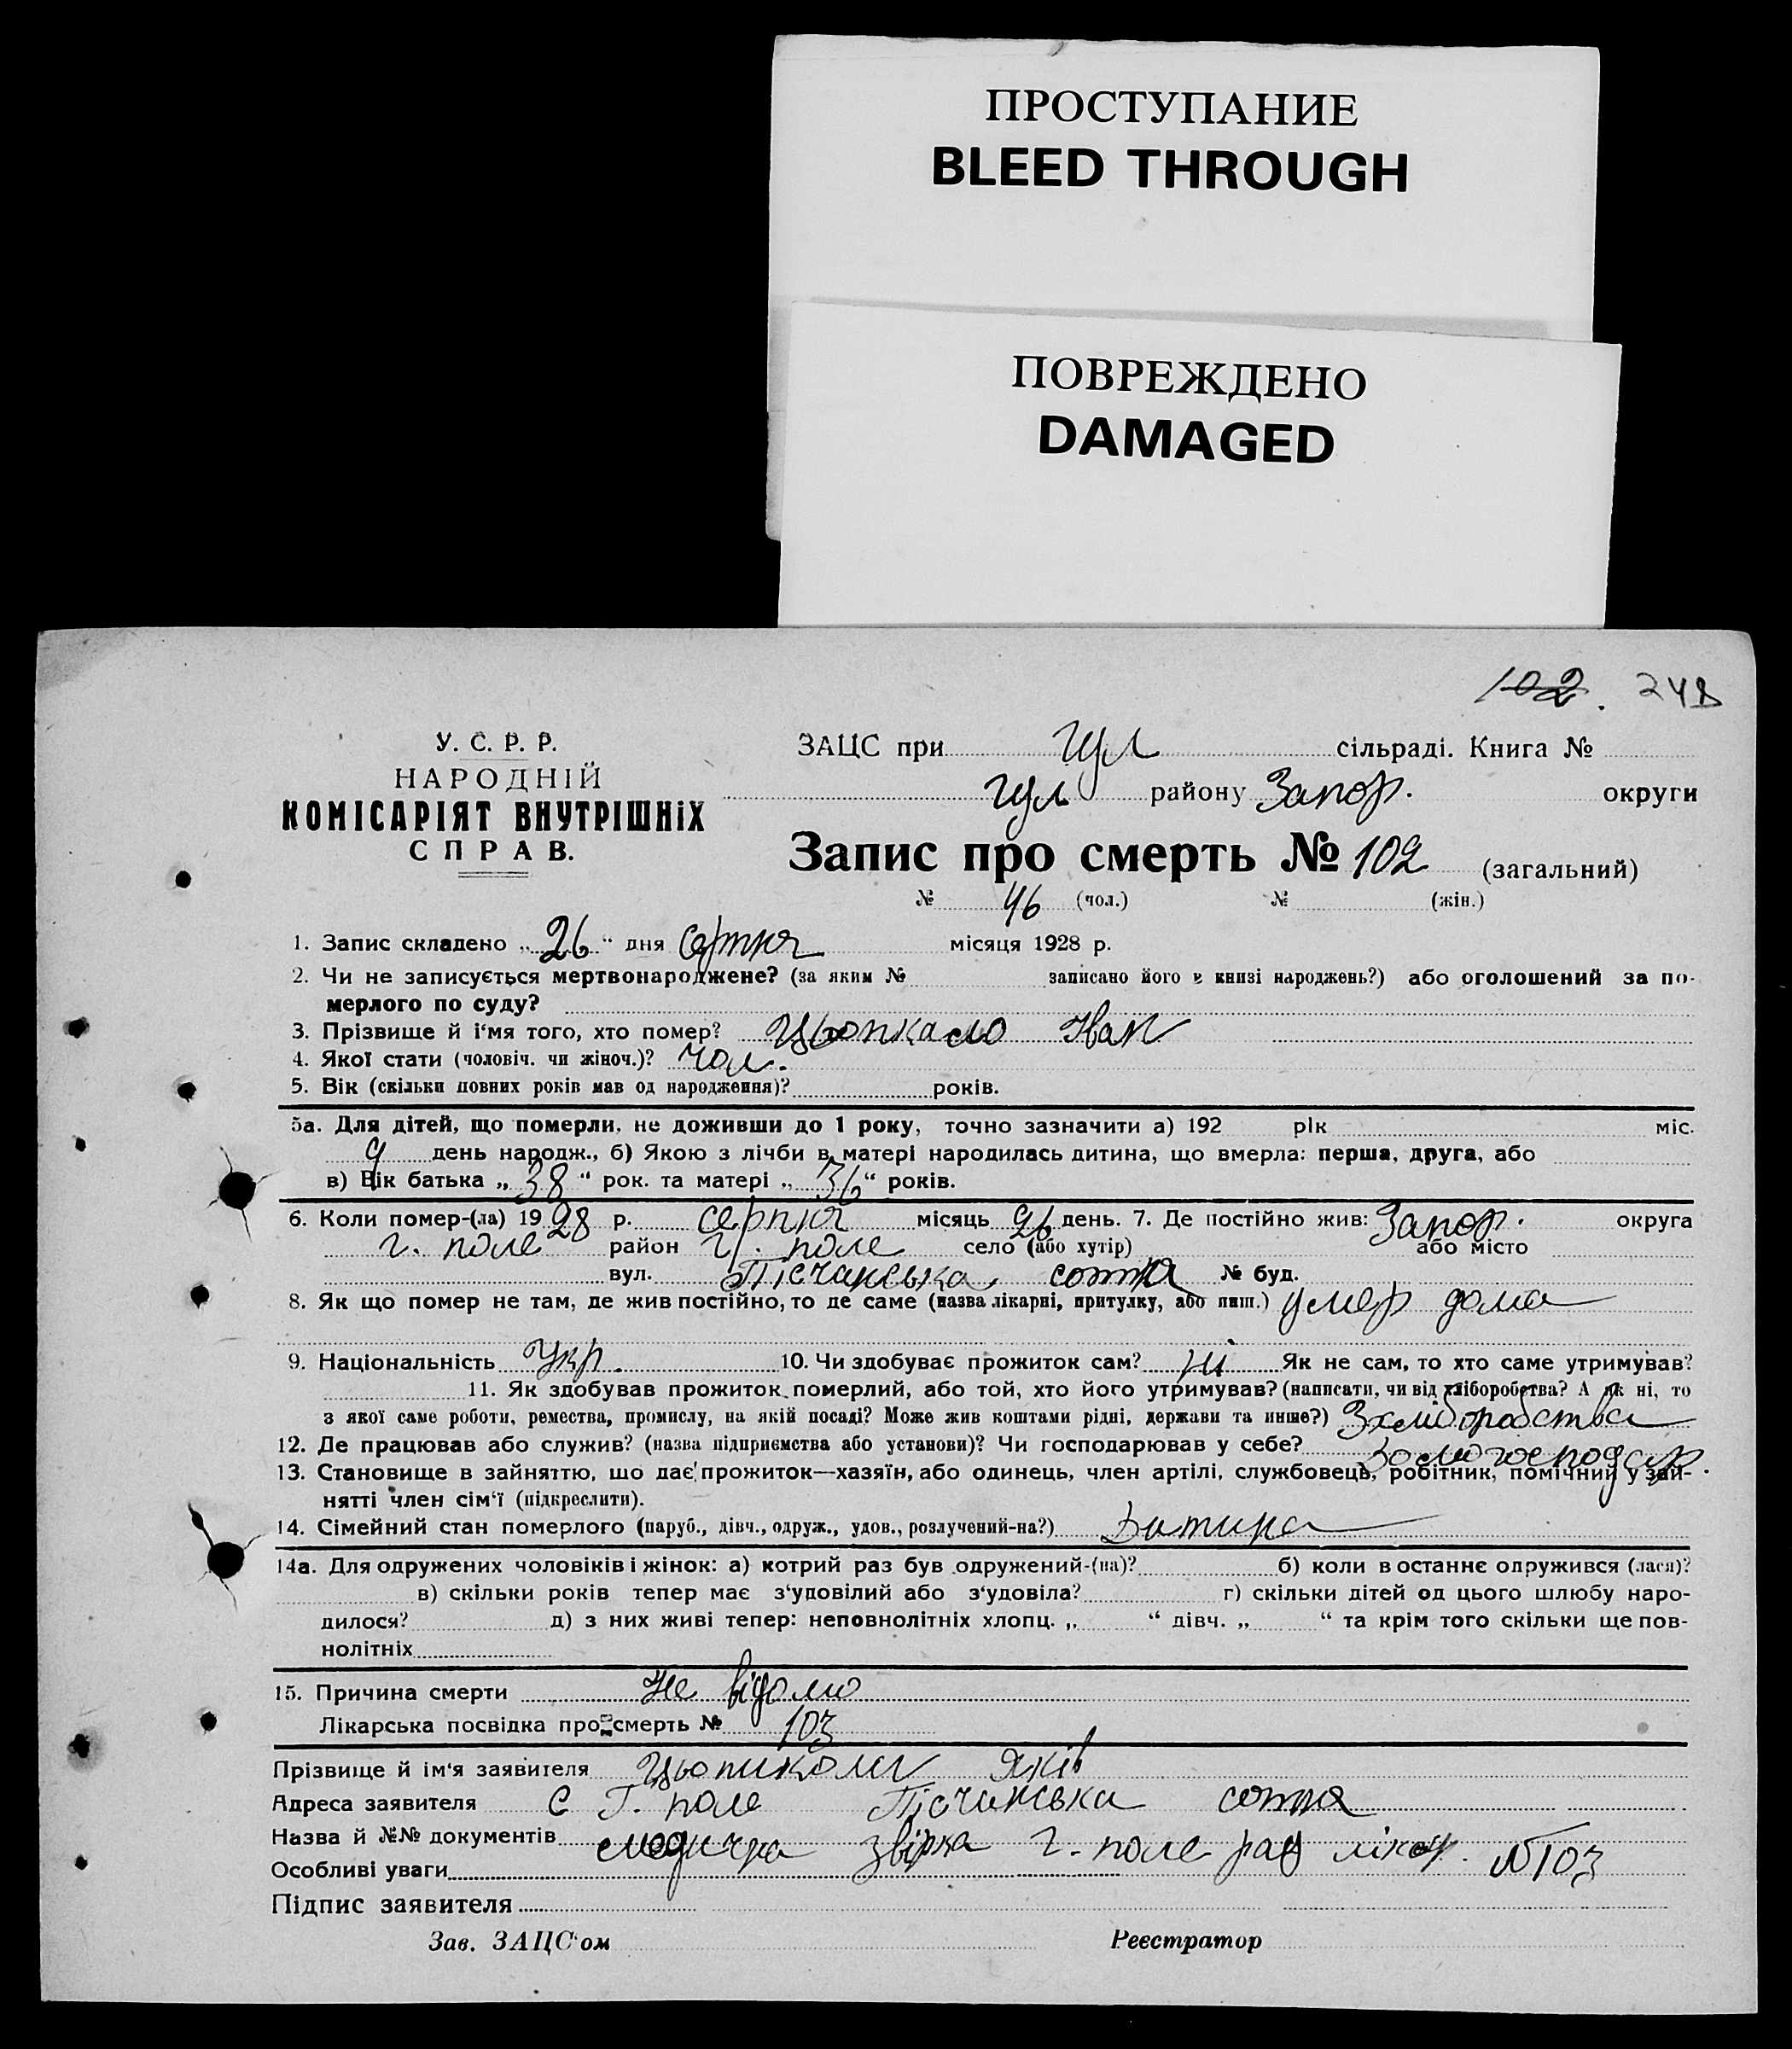 ПРОСТУПАНИЕ
BLEED THROUGH
ПОВРЕЖДЕНО
DAMAGED
102. 248
У. С. Р. Р.
НАРОДНІЙ
КОМІСАРІЯТ ВНУТРІШНіХ
СПРАВ.
ЗАЦС при Гул сільраді. Книга №
Гул району Запор. округи
Запис про смерть № 102 (загальний)
№ 46 (чол.) № (жін.)
1. Запис складено „ 26 “ дня серпня місяця 1928 р.
2. Чи не записується мертвонароджене? (за яким № записано його в книзі народжень?) або оголошений за по-
мерлого по суду?
3. Прізвище й і‘мя того, хто помер? Цьопкало Іван
4. Якої стати (чоловіч. чи жіноч.)? чол.
5. Вік (скільки повних років мав од народження)? років.
5а. Для дітей, що померли, не доживши до 1 року, точно зазначити а) 192 рік міс.
9 день народж., б) Якою з лічби в матері народилась дитина, що вмерла: перша, друга, або
в) Вік батька „ 38 “ рок. та матері „ 36 “ років.
6. Коли помер-(ла) 1928 р. серпня місяць 26 день. 7. Де постійно жив: Запор. округа
Г. поле район Г. поле село (або хутір) або місто
вул. Пісчанська сотня № буд.
8. Як що помер не там, де жив постійно, то де саме (назва лікарні, притулку, або инш.) умер дома
9. Національність Укр. 10. Чи здобуває прожиток сам? ні Як не сам, то хто саме утримував?
11. Як здобував прожиток померлий, або той, хто його утримував? (написати, чи від хліборобства? А як ні, то
з якої саме роботи, ремества, промислу, на якій посаді? Може жив коштами рідні, держави та инше?) З хліборобства
12. Де працював або служив? (назва підприємства або установи)? Чи господарював у себе?
13. Становище в зайняттю, що дає прожиток—хазяїн, або одинець, член артілі, службовець, робітник, помічний у зай-
нятті член сім‘ї (підкреслити).
14. Сімейний стан померлого (паруб., дівч., одруж., удов., розлучений-на?) Дитина
14а. Для одружених чоловіків і жінок: а) котрий раз був одружений-(на)? б) коли востаннє одружився (лася)?
в) скільки років тепер має з‘удовілий або з‘удовіла? г) скільки дітей од цього шлюбу наро-
дилося? д) з них живі тепер: неповнолітніх хлопц. „ “ дівч. „ “ та крім того скільки ще пов-
нолітніх
15. Причина смерти Не відомо
Лікарська посвідка про смерть № 103
Прізвище й ім‘я заявителя Яків
Адреса заявителя с Г. поле Пісчанська сотня
Назва й №№ документів Г-поле рай лікар. №103
Особливі уваги
Підпис заявителя
Зав. ЗАЦС‘ом Реєстратор